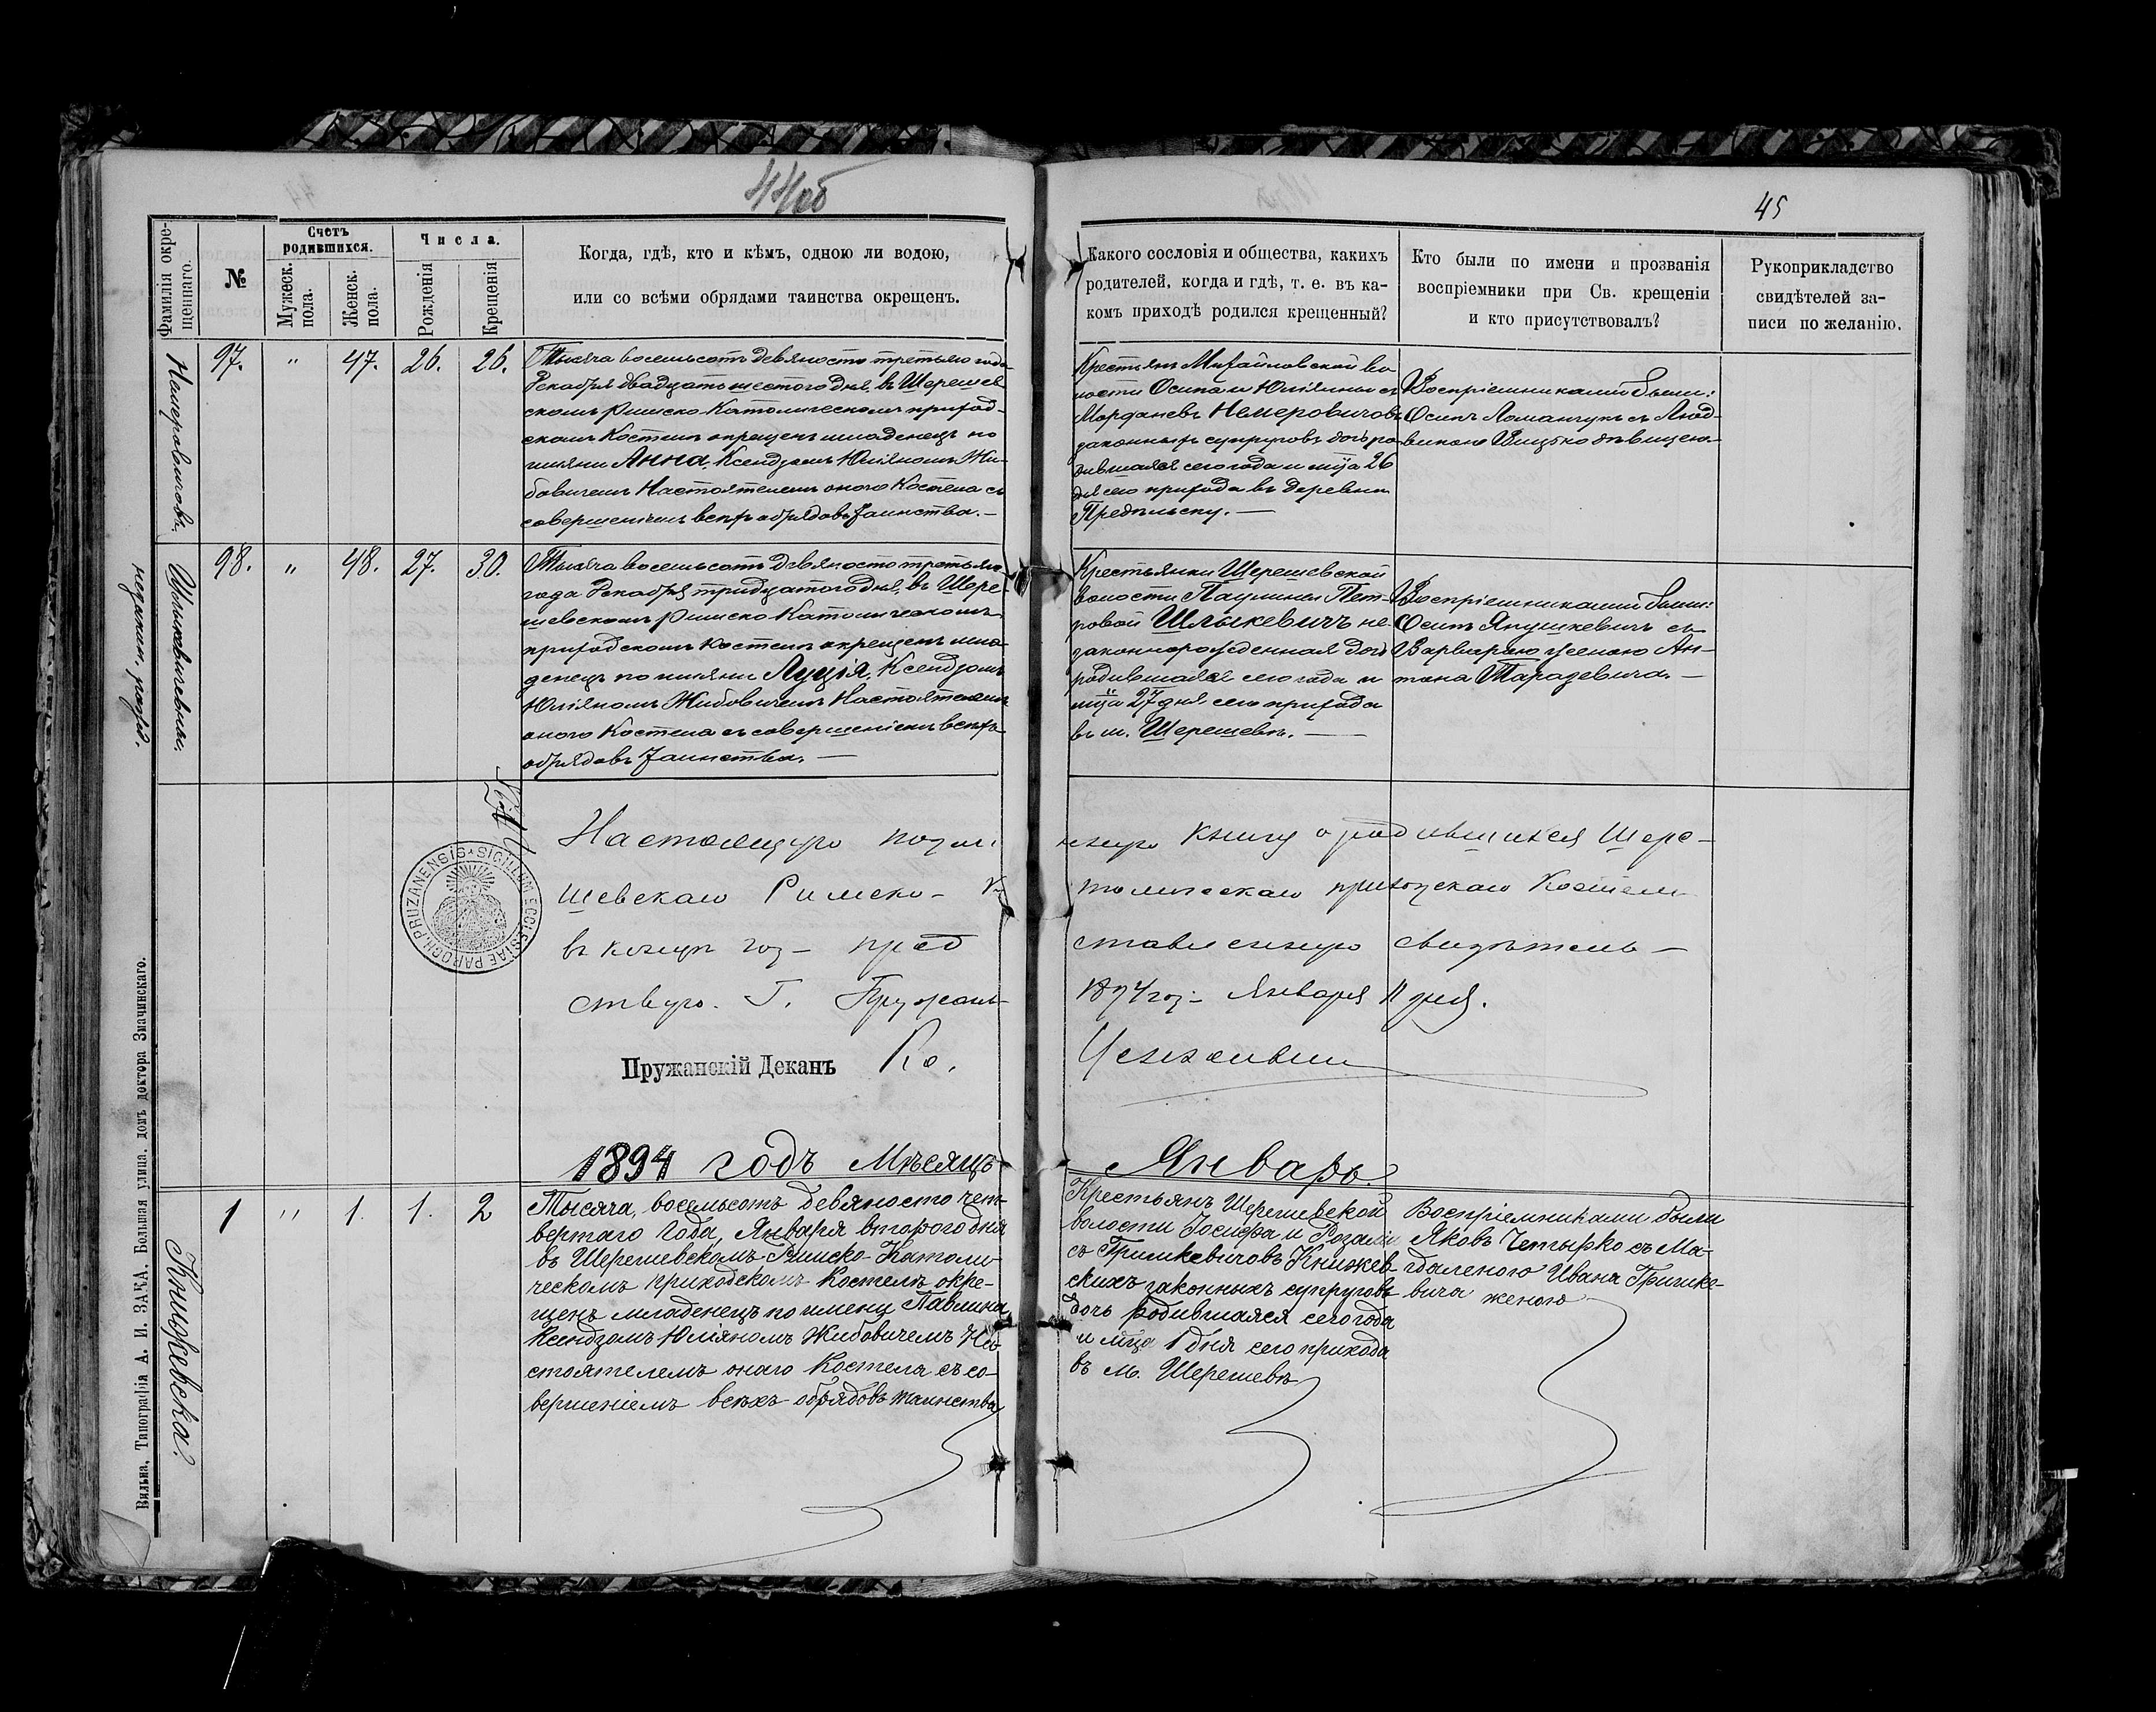 44об
45
Фамилія окре-
щеннаго.
№
Счетъ
родившихся.
Мужеск.
пола.
Женск.
пола.
Числа.
Рожденія
Крещенія
Когда, гдѣ, кто и кѣмъ, одною ли водою,
или со всѣми обрядами таинства окрещенъ.
Какого сословія и общества, какихъ
родителей, когда и гдѣ, т. е. въ ка-
комъ приходѣ родился крещенный?
Кто были по имени и прозванія
воспріемники при Св. крещеніи
и кто присутствовалъ?
Рукоприкладство
свидѣтелей за-
писи по желанію.
Немеровичовъ.
97. " 47. 26. 26.
Тысяча восемьсотъ девяносто третьяго года
Декабря двадцать шестого дня, въ Шерешев
скомъ Римско-Католическомъ приход-
скомъ Костелѣ окрещенъ младенецъ по
имяни Анна, Ксендзомъ Юліяномъ Жи-
бовичемъ Настоятелемъ оного Костела съ
совершеніемъ всѣхъ обрядовъ Таинства.—
Крестьянъ Михайловской во
лости Осипа и Юліянны съ
Мордачевъ Немеровичовъ
законныхъ супруговъ дочь ро-
дившаяся сего года и мца 26
дня сего прихода въ деревни
Предѣльску.—
Воспріемниками были:
Осипъ Ломанчукъ съ Люд-
викою дѣвицею
Шлыкевичевны.
незаконн. рожд.
98. " 48. 27. 30.
Тысяча восемьсотъ девяносто третьяго
года Декабря тридцатого дня, въ Шере-
шевскомъ Римско-Католическомъ
приходскомъ Костелѣ окрещенъ мла-
денецъ по имяни Луція, Ксендзомъ
Юліяномъ Жибовичемъ Настоятелемъ
оного Костела съ совершеніемъ всѣхъ
обрядовъ Таинства.—
Крестьянки Шерешевской
волости Паулины Пет-
ровой Шлыкевичъ не-
законнорожденная дочь
родившаяся сего года и
мца 27 дня сего прихода
въ м. Шерешевѣ.—
Воспріемниками были:
Осипъ Янушкевичъ съ
Варварою женою Ан-
тона Тарасевича.—
SIGILLUM ECCLESIAE PAROCH. PRUZANENSIS
Настоящую книгу о родившихся Шере-
шевскаго Римско-Католическаго приходскаго Костела
въ концѣ года представленную свидѣтель-
ствую. Г. Пружаны 1894 года Января 11 дня.
Пружанскій Деканъ Кс.
1894 годъ Мѣсяцъ Январь.
Книжевска.
1 " 1. 1. 2
Тысяча, восемьсотъ девяносто чет-
вертаго года, Января второго дня
въ Шерешевскомъ-Римско-Католи-
ческомъ приходскомъ Костелѣ окре-
щенъ младенецъ по имени Павлина
Ксендзомъ Юліяномъ Жибовичемъ На-
стоятелемъ онаго Костела съ со-
вершеніемъ всѣхъ обрядовъ таинства
Крестьянъ Шерешевской
волости Іосифа и Розаліи
съ Гришкевичовъ Книжев-
скихъ законныхъ супруговъ
дочь родившаяся сего года
и мца 1 дня сего прихода
въ м. Шерешевѣ
Воспріемниками были
Яковъ Четырко съ Ма-
гдаленою Ивана Гришке-
вича женою
Вильна, Типографія А. И. ЗАКА. Большая улица, домъ доктора Значинскаго.